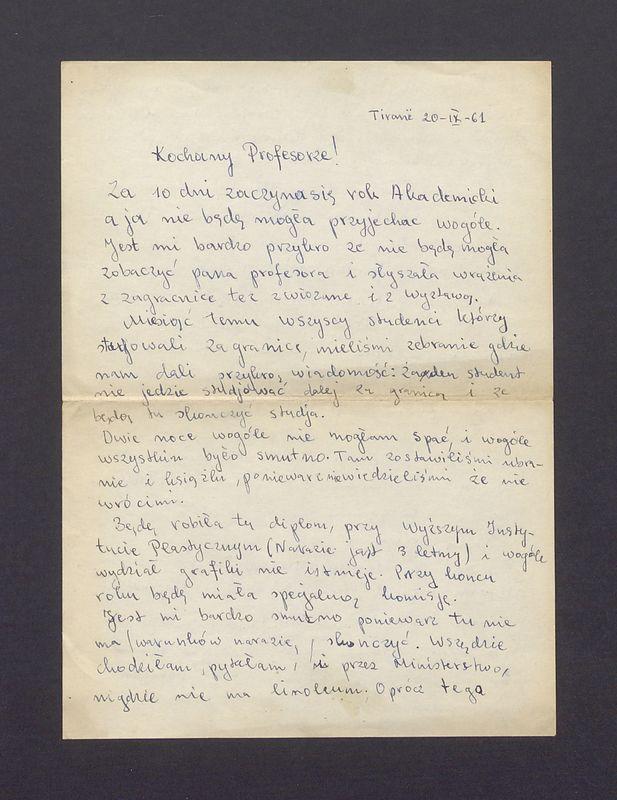 Tiranë 20-IX-61
Kochany Profesorze!
Za 10 dni zaczyna się rok Akademicki
a ja nie będę mogła przyjechac wogóle.
Jest mi bardzo przykro ze nie będę mogła
zobaczyć pana profesora i słyszała wrażenia
z zagranice tez związane i z wystawą.
Miesiąć temu wszyscy studenci którzy
studjowali zagranicę, mieliśmi zebranie gdzie
nam dali przykrą wiadomość: żaden student
nie jedzie studjować dalej za granicą i ze
będą tu skonczyć studja.
Dwie noce wogóle nie mogłam spać, i wogóle
wszystkim było smutno. Tam zostawiliśmi ubra-
nie i książki, ponieważ niewiedzieliśmi ze nie
wrócimi.
Będę robiła tu diplom, przy Wyższym Insty-
tucie Plastycznym (Narazie jest 3 letny) i wogóle
wydział grafiki nie istnieje. Przy koncu
roku będę miała specjalną komisję.
Jest mi bardzo smutno ponieważ tu nie
ma warunków narazie, skonczyć. Wszędzie
chodziłam, pytałam, i przez Ministerstwo,
nigdzie nie ma linoleum. Oprócz tego